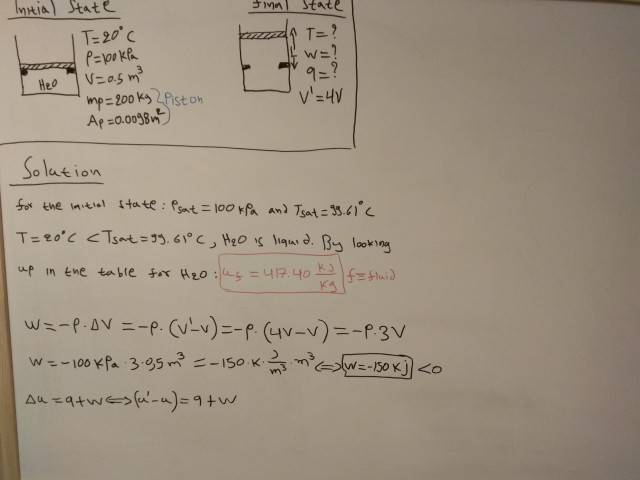 Initial State
T=20°C
P=100kPa
V=0.5m³
mp=200kg
Ap=0.0098m²
Piston
H₂O
final State
T=?
w=?
q=?
V'=4V
Solution
for the initial state: Psat=100kPa and Tsat=99.61°C
T=20°C <Tsat=99.61°C, H₂O is liquid. By looking
up in the table for H₂O: uf = 417.40 kJ/kg f=fluid
W=-P·ΔV=-P·(V'-V)=-P·(4V-V)=-P·3V
W=-100kPa·3·0,5m³=-150·K·J/m³·m³⟺W=-150kJ<0
Δu=q+w⟺(u'-u)=q+w